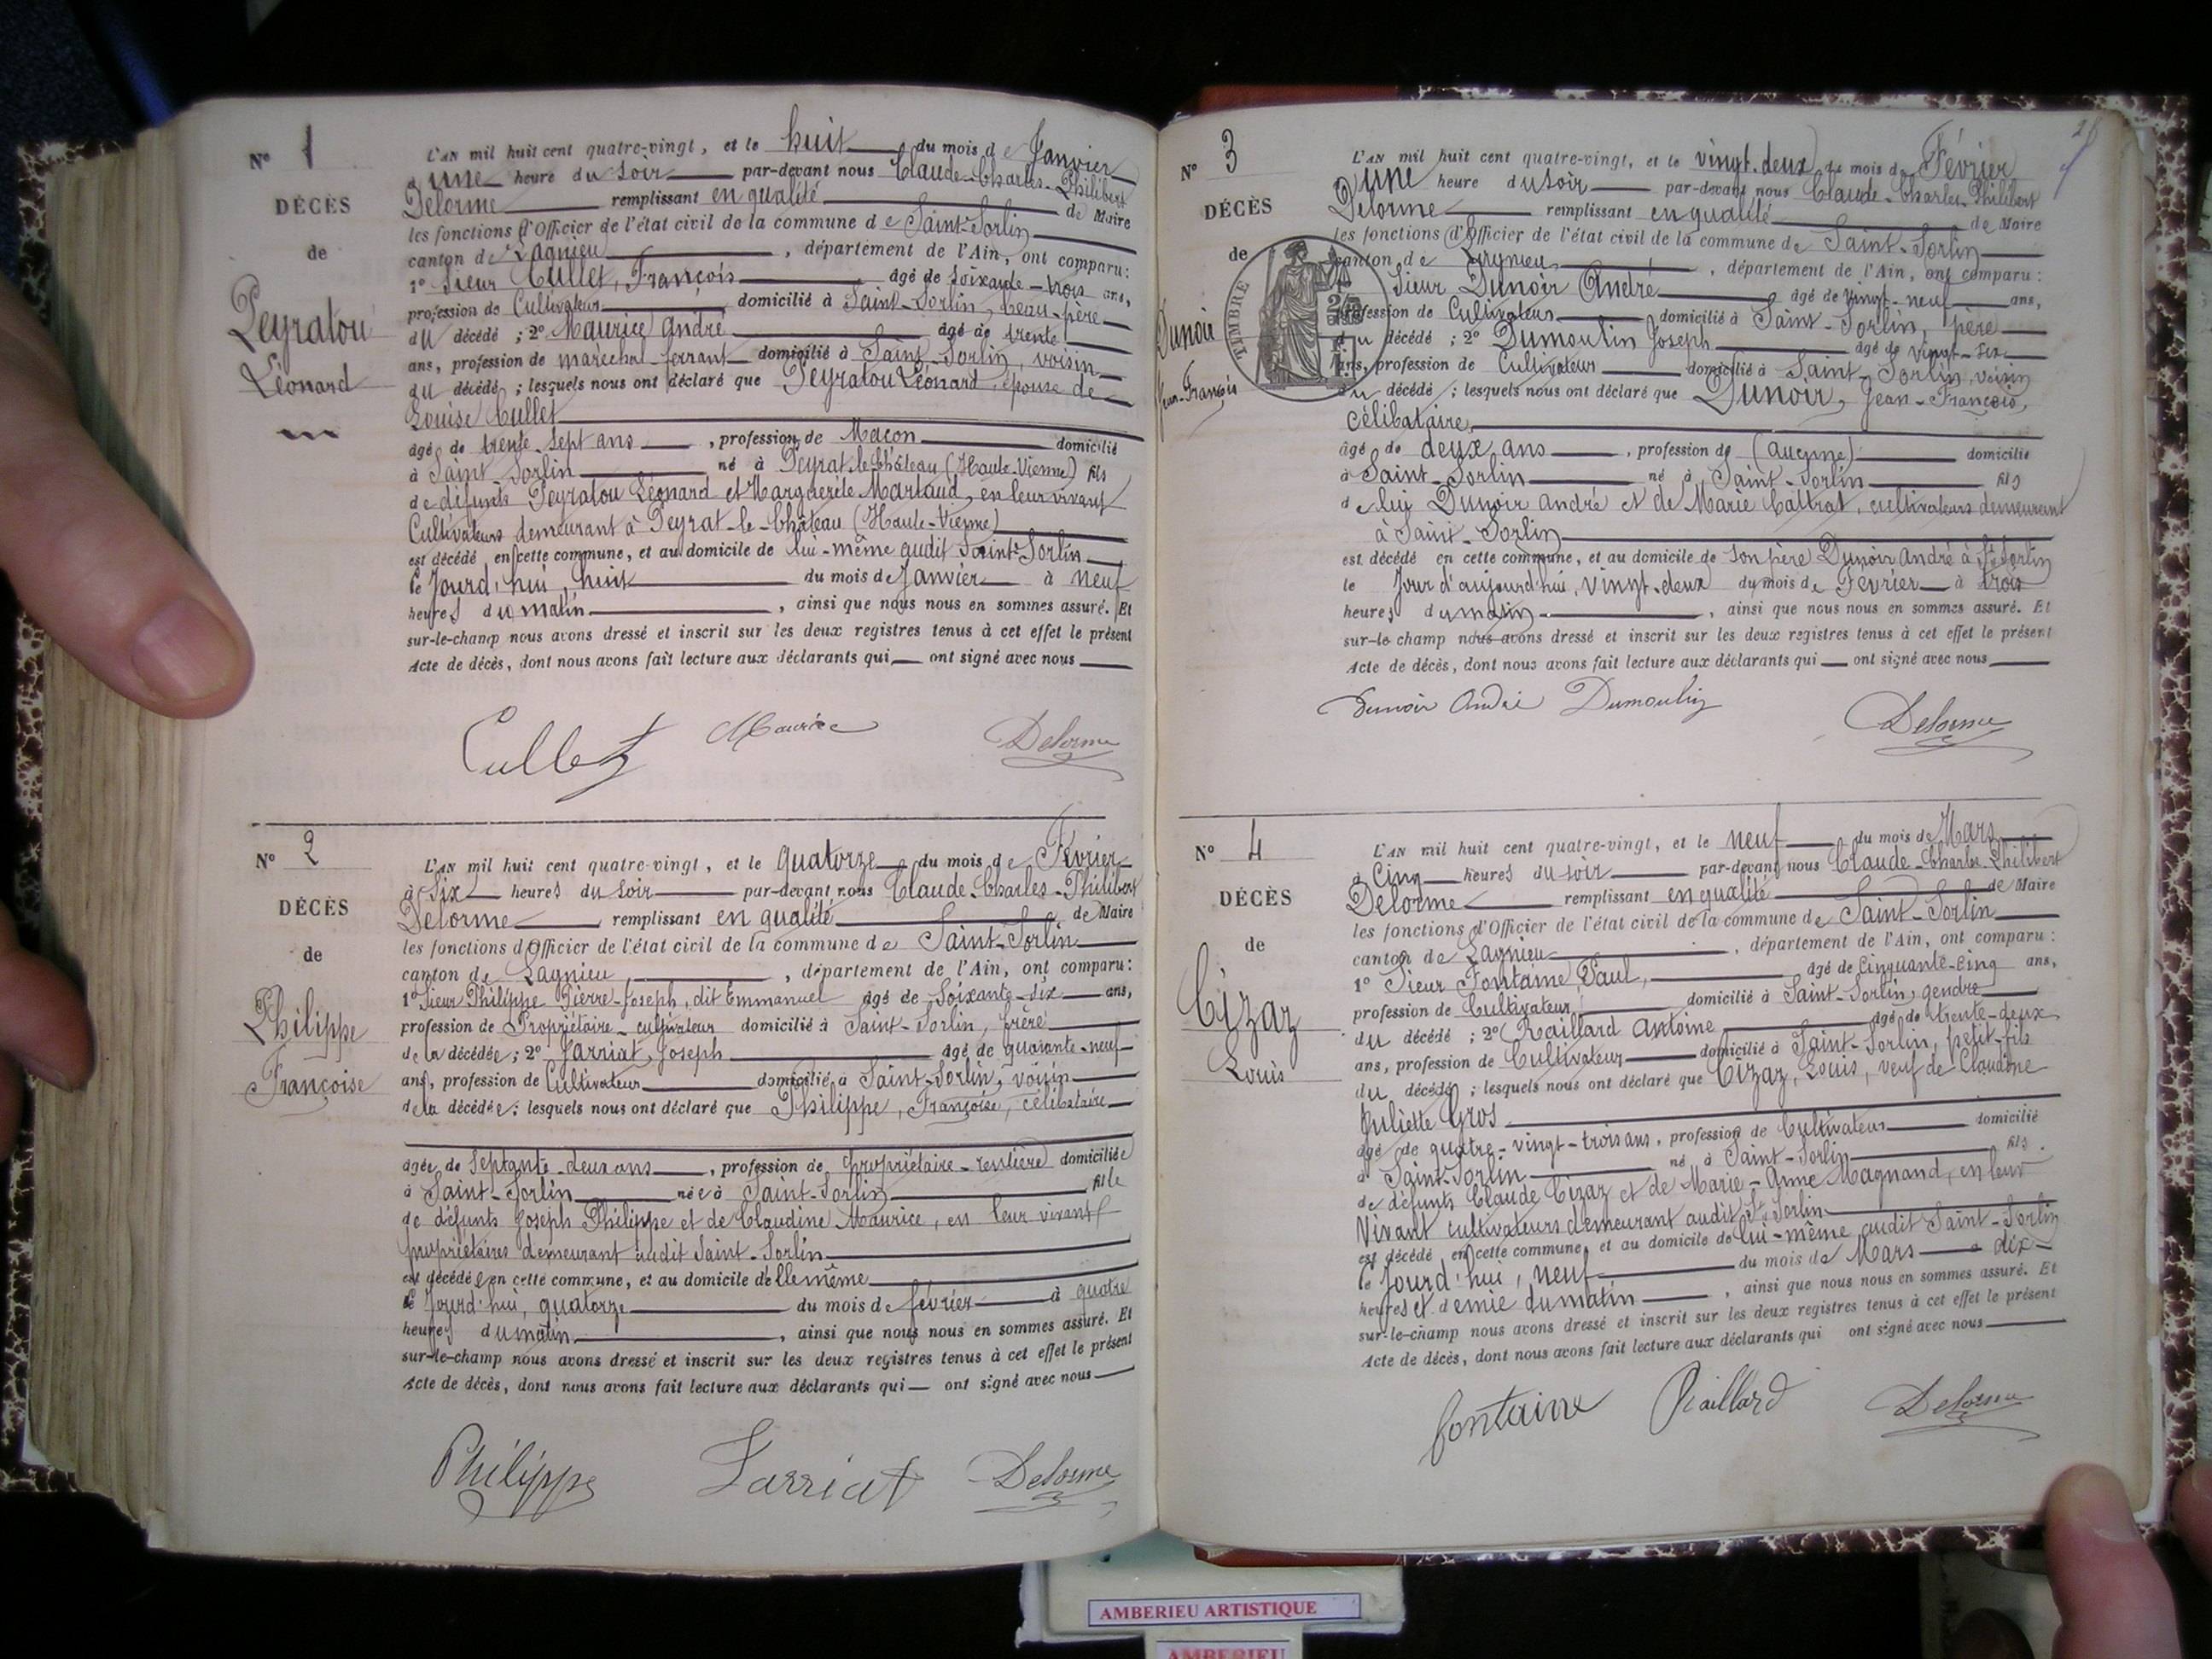 N° 1
DÉCÈS
de
Peyratou
Léonard
L'AN mil huit cent quatre-vingt, et le huit du mois de Janvier
à une heure du soir par-devant nous Claude-Charles-Philibert
Delorme remplissant en qualité de Maire
les fonctions d'Officier de l'état civil de la commune de Saint-Sorlin
canton de Lagnieu, département de l'Ain, ont comparu:
1° Sieur Cullet, François âgé de soixante-trois ans,
profession de Cultivateur domicilié à Saint-Sorlin, beau-père
du décédé; 2° Maurice André âgé de trente
ans, profession de maréchal-ferrant domicilié à Saint-Sorlin, voisin
du décédé; lesquels nous ont déclaré que Peyratou Léonard, époux de
Louise Cullet
âgé de trente-sept ans, profession de Maçon domicilié
à Saint Sorlin né à Peyrat-le-Château (Haute-Vienne) fils
de défunts Peyratou Léonard et Marguerite Martaud, en leur vivant
Cultivateurs demeurant à Peyrat-le-Château (Haute-Vienne)
est décédé en cette commune, et au domicile de lui-même audit Saint-Sorlin
le Jourd'hui, huit du mois de Janvier à neuf
heures du matin, ainsi que nous nous en sommes assuré. Et
sur-le-champ nous avons dressé et inscrit sur les deux registres tenus à cet effet le présent
Acte de décès, dont nous avons fait lecture aux déclarants qui ont signé avec nous
Cullet Maurice Delorme
N° 2
DÉCÈS
de
Philippe
Françoise
L'AN mil huit cent quatre-vingt, et le quatorze du mois de Février
à Six heures du soir par-devant nous Claude-Charles-Philibert
Delorme remplissant en qualité de Maire
les fonctions d'Officier de l'état civil de la commune de Saint-Sorlin
canton de Lagnieu, département de l'Ain, ont comparu:
1° Sieur Philippe Pierre-Joseph, dit Emmanuel âgé de Soixante-six ans,
profession de Propriétaire-cultivateur domicilié à Saint-Sorlin, frère
de la décédée; 2° Jarriat, Joseph âgé de quarante-neuf
ans, profession de Cultivateur domicilié à Saint-Sorlin, voisin
de la décédée; lesquels nous ont déclaré que Philippe, Françoise, célibataire
âgée de Septante-deux ans, profession de propriétaire-rentière domiciliée
à Saint-Sorlin née à Saint-Sorlin fille
de défunts Joseph Philippe et de Claudine Maurice, en leur vivant
propriétaires demeurant audit Saint-Sorlin
est décédée en cette commune, et au domicile d'elle même
le Jourd'hui, quatorze du mois de février à quatre
heures du matin, ainsi que nous nous en sommes assuré. Et
sur-le-champ nous avons dressé et inscrit sur les deux registres tenus à cet effet le présent
Acte de décès, dont nous avons fait lecture aux déclarants qui ont signé avec nous
Philippe Jarriat Delorme
N° 3
DÉCÈS
de
Dunoir
Jean-François
TIMBRE
L'AN mil huit cent quatre-vingt, et le vingt-deux du mois de Février
D'une heure du soir par-devant nous Claude-Charles-Philibert
Delorme remplissant en qualité de Maire
les fonctions d'Officier de l'état civil de la commune de Saint-Sorlin
canton de Lagnieu, département de l'Ain, ont comparu:
Sieur Dunoir André âgé de vingt-neuf ans,
profession de Cultivateur domicilié à Saint-Sorlin, père
du décédé; 2° Dumoulin Joseph âgé de vingt-six
ans, profession de Cultivateur domicilié à Saint-Sorlin, voisin
du décédé; lesquels nous ont déclaré que Dunoir, Jean-François,
célibataire,
âgé de deux ans, profession de (aucune) domicilié
à Saint-Sorlin né à Saint-Sorlin fils
de lui Dunoir André et de Marie Cattrat, cultivateurs demeurant
à Saint-Sorlin
est décédé en cette commune, et au domicile de son père Dunoir André à St Sorlin
le Jour d'aujourd'hui, vingt-deux du mois de Février à trois
heures du matin, ainsi que nous nous en sommes assuré. Et
sur-le champ nous avons dressé et inscrit sur les deux registres tenus à cet effet le présent
Acte de décès, dont nous avons fait lecture aux déclarants qui ont signé avec nous
Dunoir André Dumoulin Delorme
N° 4
DÉCÈS
de
Cizaz
Louis
L'AN mil huit cent quatre-vingt, et le neuf du mois de Mars
à Cinq heures du soir par-devant nous Claude-Charles-Philibert
Delorme remplissant en qualité de Maire
les fonctions d'Officier de l'état civil de la commune de Saint-Sorlin
canton de Lagnieu, département de l'Ain, ont comparu:
1° Sieur Fontaine, Paul, âgé de Cinquante-cinq ans,
profession de Cultivateur domicilié à Saint-Sorlin, gendre
du décédé; 2° Raillard Antoine âgé de trente-deux
ans, profession de Cultivateur domicilié à Saint-Sorlin, petit-fils
du décédé; lesquels nous ont déclaré que Cizaz, Louis, veuf de Claudine
Juliette Gros
âgé de quatre-vingt-trois ans, profession de Cultivateur domicilié
à Saint-Sorlin né à Saint-Sorlin fils
de défunts Claude Cizaz et de Marie-Anne Magnand, en leur
Vivant cultivateurs demeurant audit St Sorlin
est décédé en cette commune, et au domicile de lui-même audit Saint-Sorlin
le Jourd'hui, neuf du mois de Mars à dix
heures et demie du matin, ainsi que nous nous en sommes assuré. Et
sur-le-champ nous avons dressé et inscrit sur les deux registres tenus à cet effet le présent
Acte de décès, dont nous avons fait lecture aux déclarants qui ont signé avec nous
Fontaine Raillard Delorme
AMBERIEU ARTISTIQUE
AMBERIEU